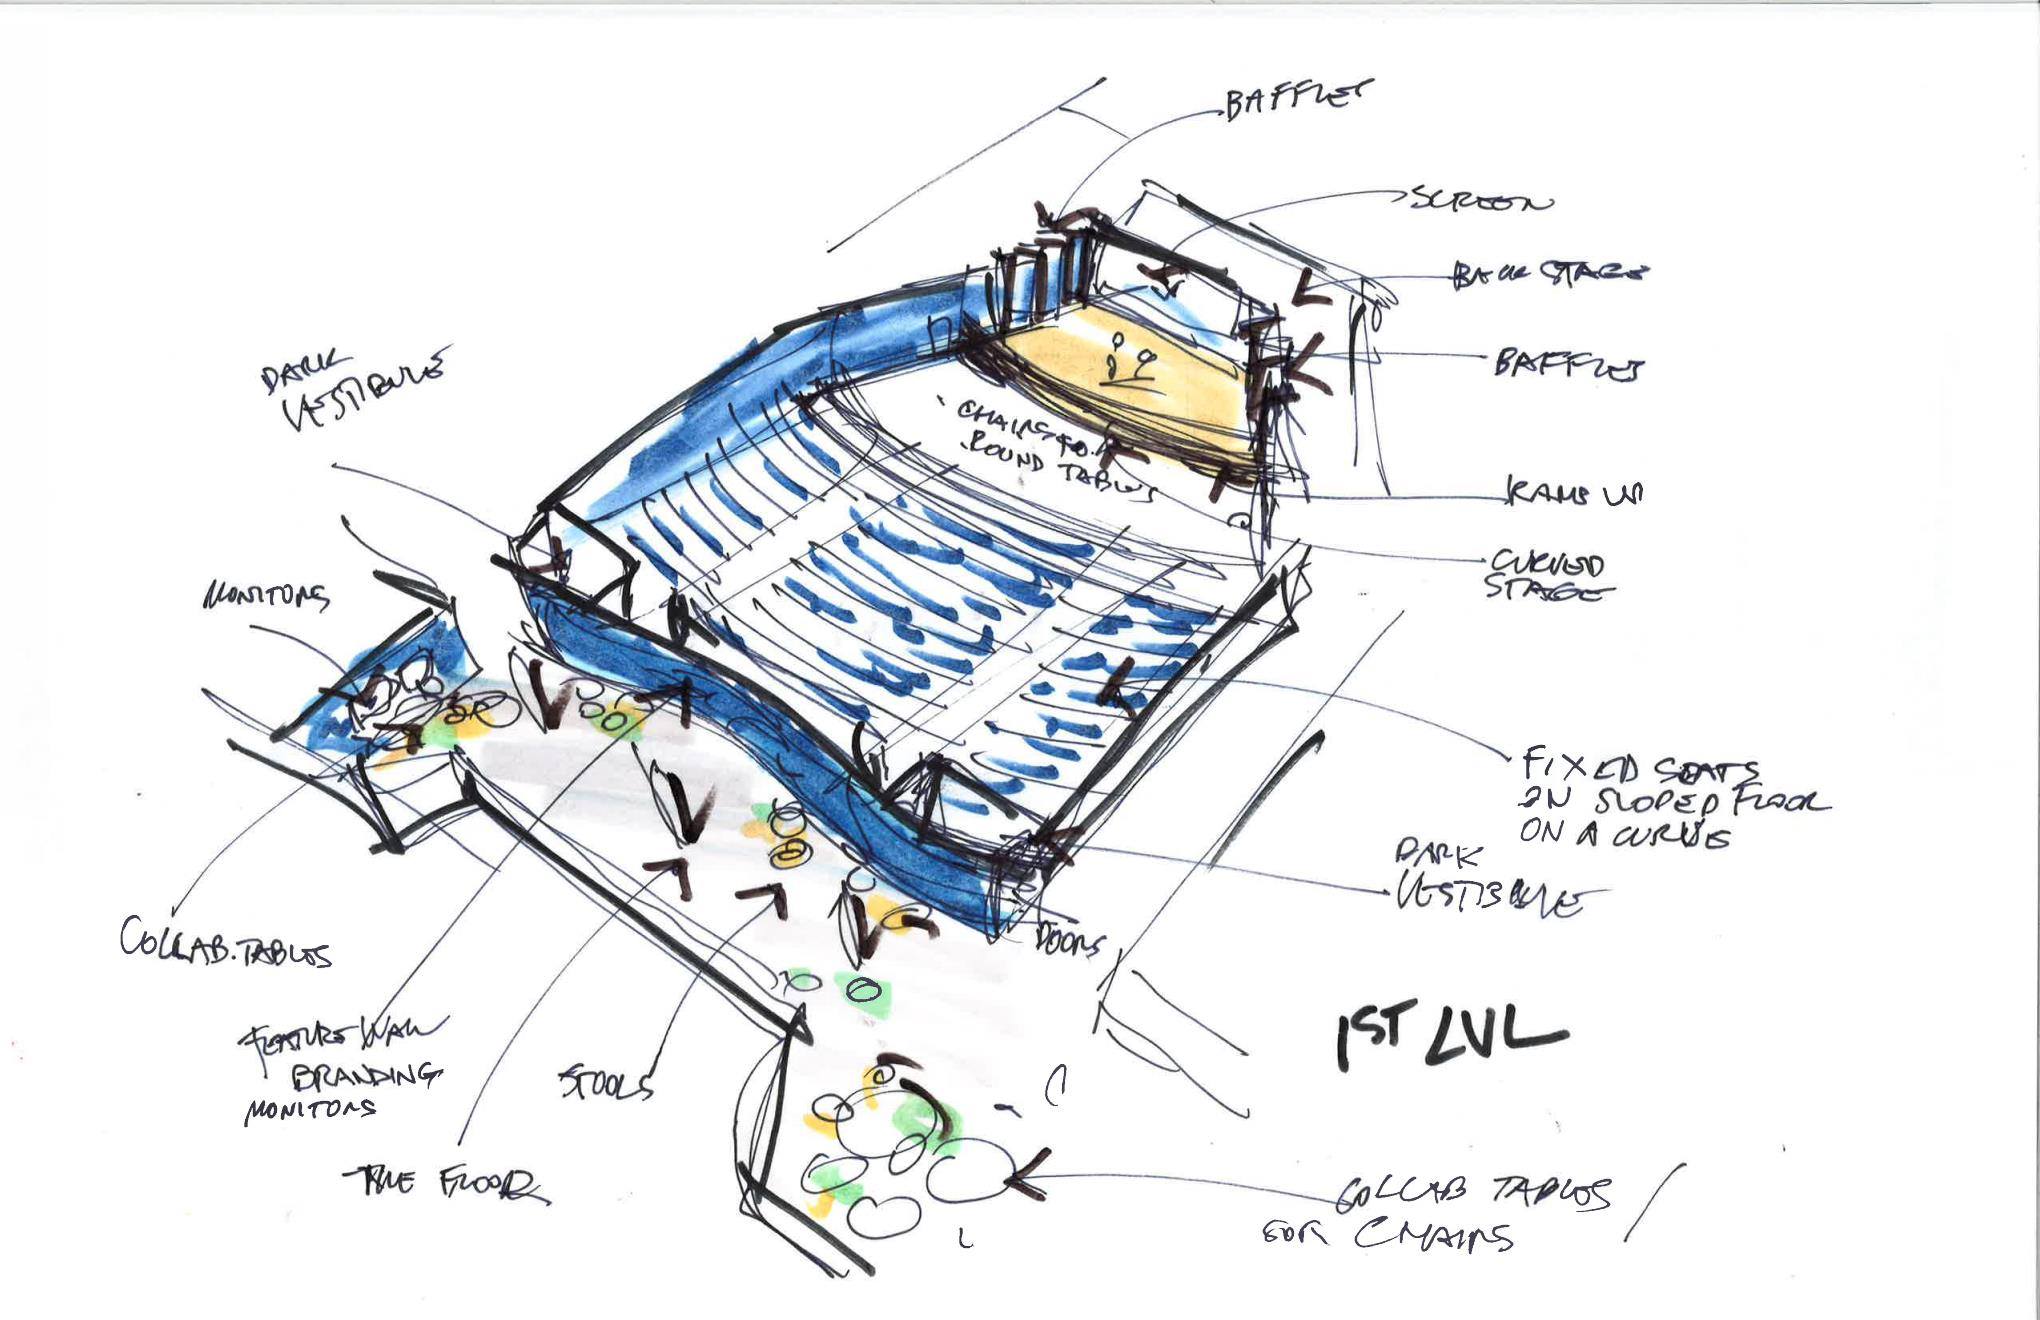 BAFFLES
SCREEN
BACK STAGE
BAFFLES
RAMP UP
CURVED
STAGE
CHAIRS FOR
ROUND TABLES
DARK
VESTIBULE
MONITORS
COLLAB. TABLES
FEATURE WALL
BRANDING
MONITORS
STOOLS
TILE FLOOR
DOORS
FIXED SEATS
ON SLOPED FLOOR
ON A CURVE
DARK
VESTIBULE
1ST LVL
COLLAB TABLES
FOR CHAIRS